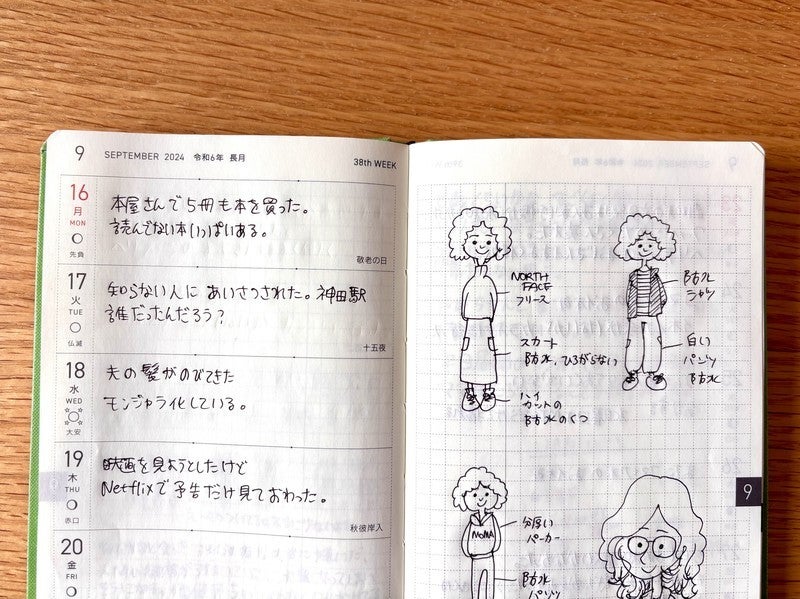 9 SEPTEMBER 2024 令和6年 長月 38th WEEK
16
月
MON
先負
本屋さんで5冊も本を買った。
読んでない本いっぱいある。
敬老の日
17
火
TUE
仏滅
知らない人にあいさつされた。神田駅
誰だったんだろう?
十五夜
18
水
WED
大安
夫の髪がのびてきた
モンジャラ化している。
19
木
THU
赤口
映画を見ようとしたけど
Netflixで予告だけ見ておわった。
秋彼岸入
20
金
FRI
NORTH
FACE
フリース
スカート
防水、ひろがらない
ハイ
カットの
防水のくつ
防水
シャツ
白い
パンツ
防水
MoMA
分厚い
パーカー
防水
パンツ
9